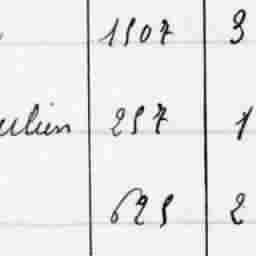 1507 3
ulien 257 1
625 2